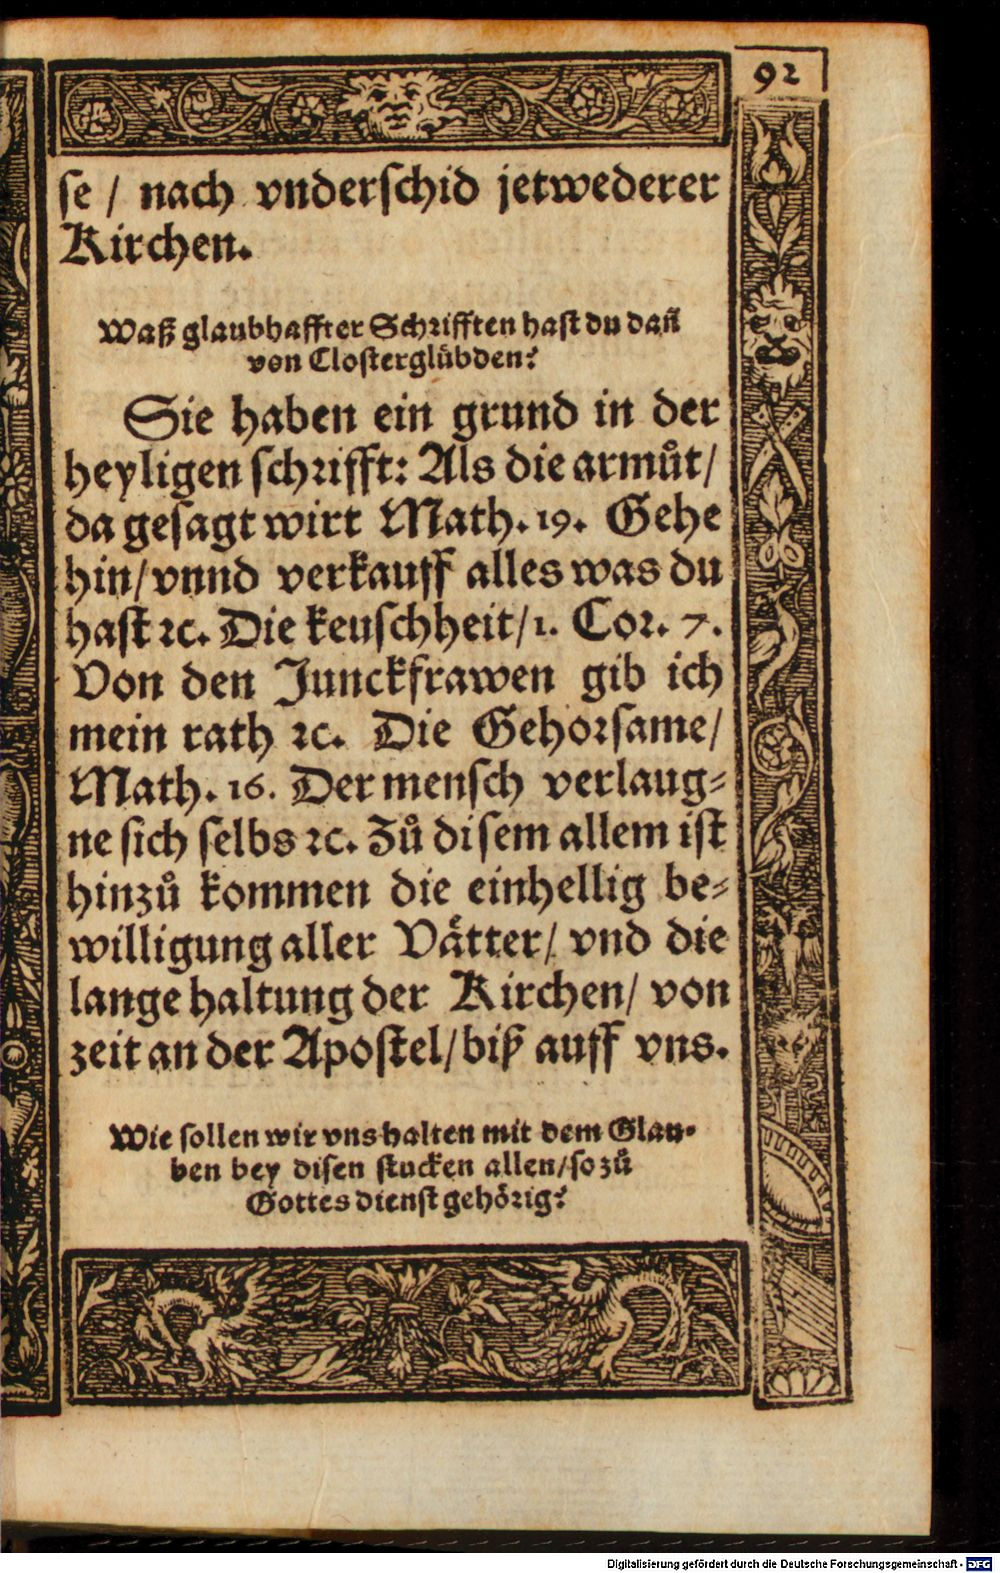 92
se / nach vnderschid jetwederer
Kirchen.
Waß glaubhaffter Schrifften hast du dañ
von Closterglübden?
Sie haben ein grund in der
heyligen schrifft: Als die armůt/
da gesagt wirt Math. 19. Gehe
hin/ vnnd verkauff alles was du
hast ꝛc. Die keuschheit/ 1. Cor. 7.
Von den Junckfrawen gib ich
mein rath ꝛc. Die Gehorsame/
Math. 16. Der mensch verlaug⸗
ne sich selbs ꝛc. Zů disem allem ist
hinzů kommen die einhellig be⸗
willigung aller Vätter/ vnd die
lange haltung der Kirchen/ von
zeit an der Apostel/ biß auff vns.
Wie sollen wir vns halten mit dem Glau⸗
ben bey disen stucken allen/ so zů
Gottes dienst gehörig?
Digitalisierung gefördert durch die Deutsche Forschungsgemeinschaft - DFG